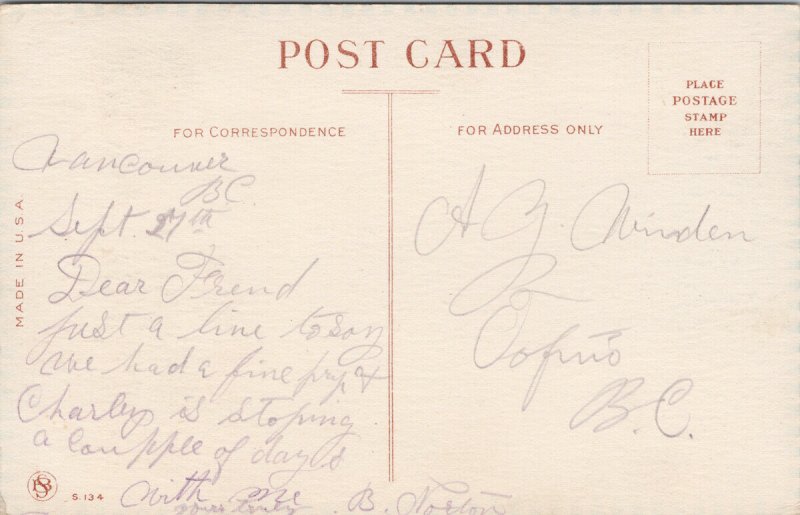 POST CARD
PLACE
POSTAGE
STAMP
HERE
FOR CORRESPONDENCE
FOR ADDRESS ONLY
MADE IN U.S.A.
Vancouver
BC
Sept. 27th
Dear Frend
just a line to say
we had a fine &
Charley is stoping
a coupple of days
with me
yours truly
B. Norton
A Y. Winden
Tofino
B.C.
S.134